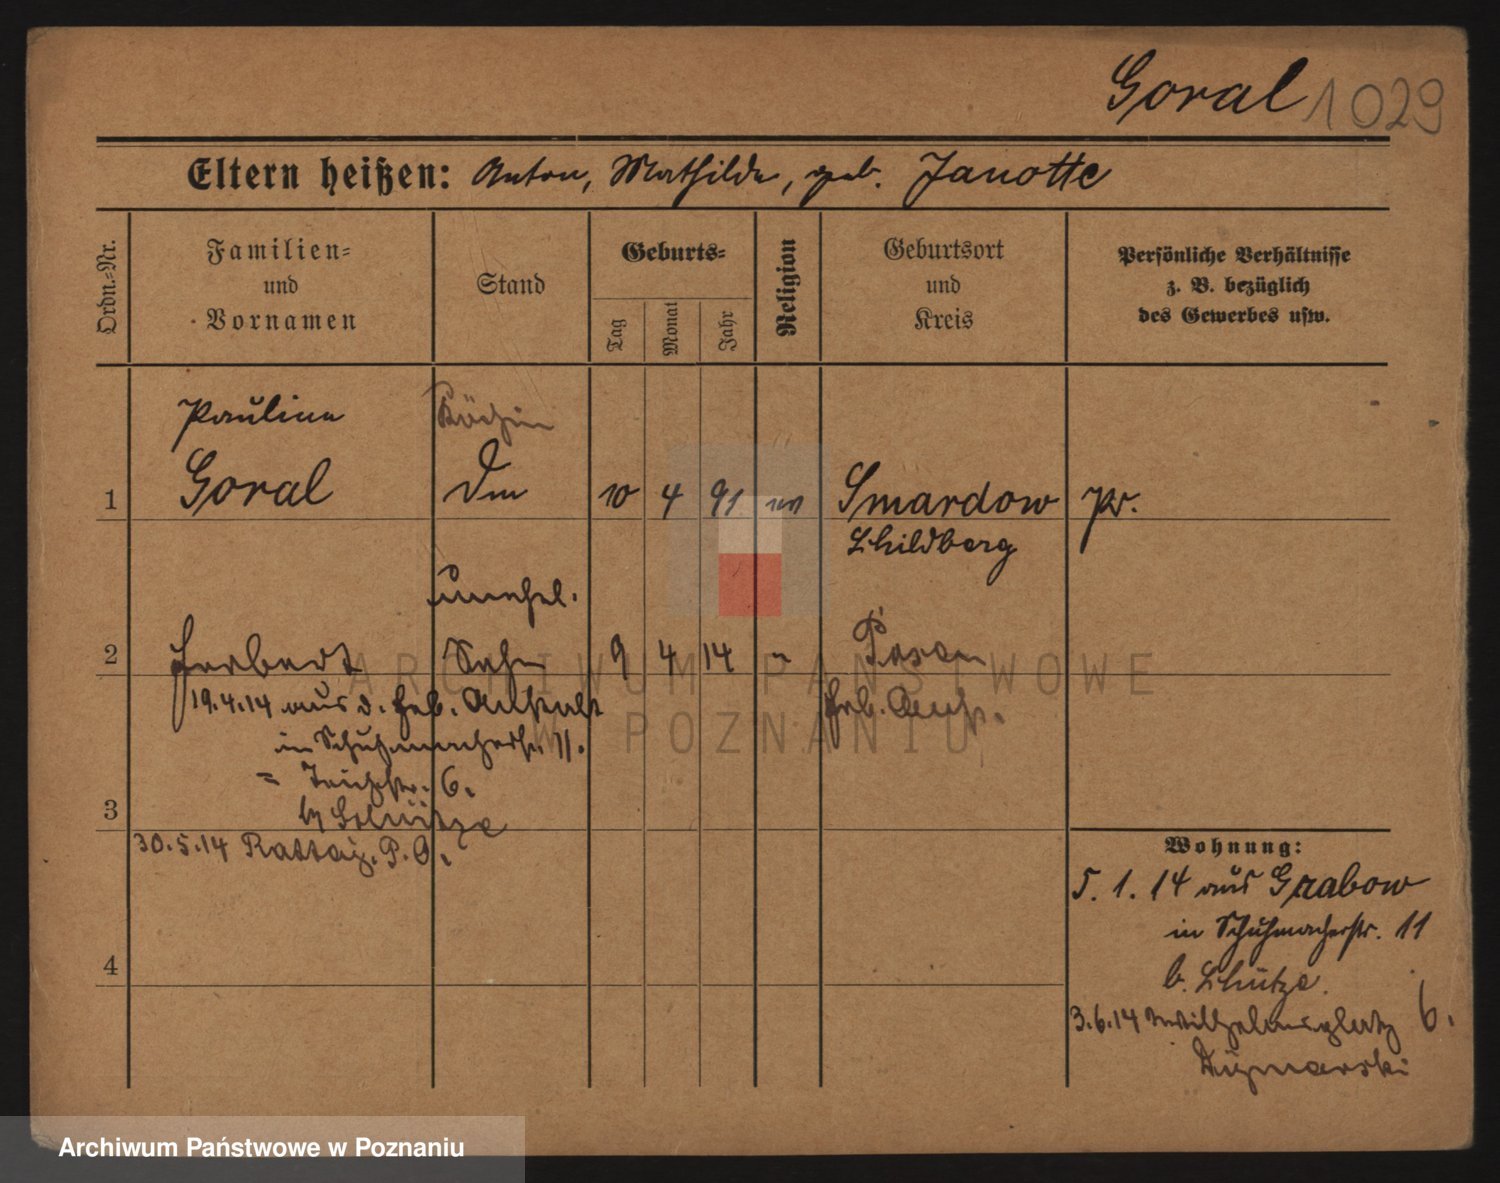 Goral 1029
Eltern heißen: Anton, Mathilde, geb. Janotte
Ordn.=Nr.
Familien=
und
Vornamen
Stand
Geburts=
Tag
Monat
Jahr
Religion
Geburtsort
und
Kreis
Persönliche Verhältnisse
z. B. bezüglich
des Gewerbes usw.
Pauline Köchin
1 Goral 10 4 91 Smardow Pr.
Schildberg
unehel.
2 Herbert Sohn 9 4 14 Posen
19.4.14 aus d. Heb. Anstalt Heb. Anst.
in Schuhmacherstr. 11.
= Teichstr. 6.
by Schütze
3
30.5.14 P. O.
4
Wohnung:
5. 1. 14 aus Grabow
in Schuhmacherstr. 11
b. Schütze.
3.6.14 Wilhelmsplatz 6.
ARCHIWUM PAŃSTWOWE
W POZNANIU
Archiwum Państwowe w Poznaniu